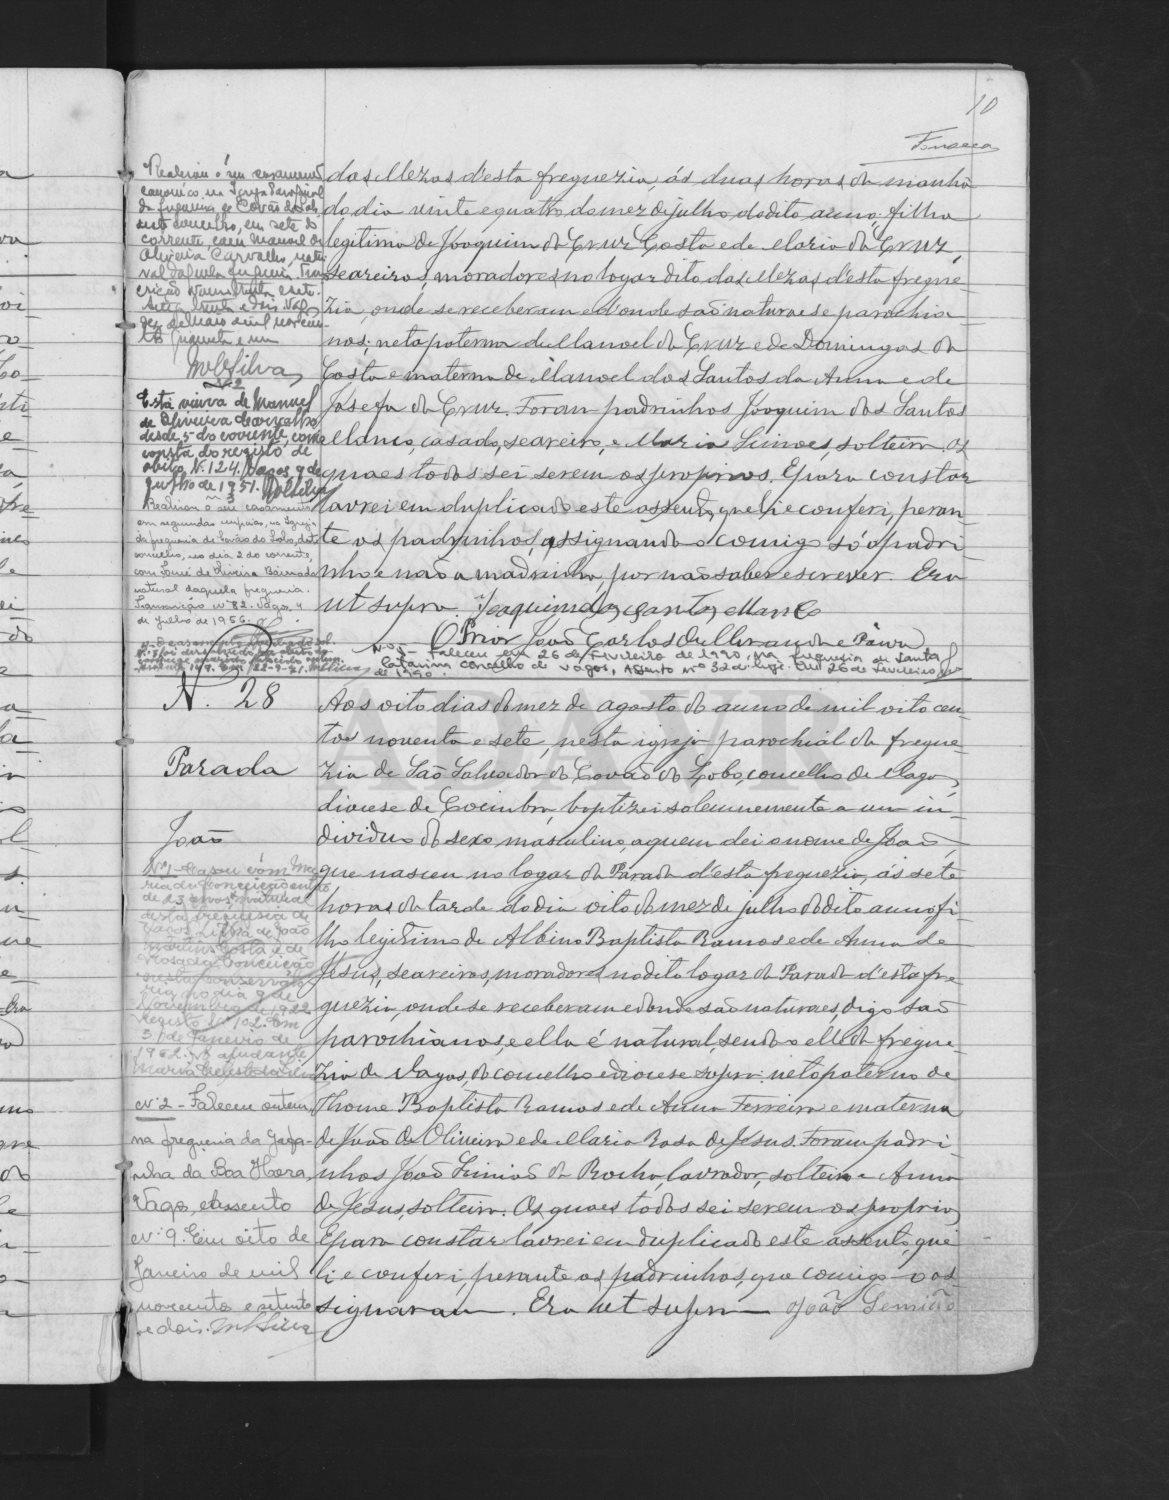 10
Fonseca
das Mezas d'esta freguezia, ás duas horas da manhã
do dia vinte e quatro do mez de julho do dito anno: filha
legitima de Joaquim da Cruz Costa e de Maria da Cruz,
seareiros, moradores no logar dito das Mezas d'esta fregue-
zia, onde se receberam e d'onde são naturaes e parochia-
nos; neta paterna de Manoel da Cruz e de Domingas da
Costa e materna de Manoel dos Santos da Anna e de
Josefa da Cruz. Foram padrinhos Joaquim dos Santos
Manco, casado, seareiro, e Maria Simões, solteira os
quaes todos sei serem os proprios. E para constar
lavrei em duplicado este assento, que li e conferi, peran-
te os padrinhos, assignando comigo só o padri-
nho e não a madrinha, por não saber escrever. Era
ut supra. Joaquim dos Santos Manco
O Prior João Carlos de Miranda e Paiva
Realizou o seu casamento
canonico, na Igreja Paroquial
da freguesia de Covão do Lobo,
deste concelho, em sete do
corrente, com Manuel de
Oliveira Carvalho, natu-
ral daquela freguesia. Trans-
crição numero trinta e sete.
Vagos,
de Maio de mil novecen-
tos quarenta e um
MCSilva
Nº 2
Está viúva de Manuel
de Oliveira Carvalho
desde 5 do corrente, como
consta do registo de
obito Nº 124. Vagos, 9 de
Junho de 1951. MCSilva
Nº 3
Realizou o seu casamento
em segundas nupcias, na Igreja
da freguesia de Covão do Lobo, deste
concelho, no dia 2 do corrente,
com José de Oliveira
natural daquela freguesia.
Transcrição nº 82. Vagos, 4
de Julho de 1956.
Nº 5 - Faleceu em 26 de Fevereiro de 1990, na freguesia de Santa
Catarina concelho de Vagos, Assento nº 32 de hoje. Em 26 de Fevereiro
de 1990.
N. 28
Parada
João
Aos oito dias do mez de agosto do anno de mil oito cen-
tos noventa e sete, nesta igreja parochial da fregue-
zia de São Salvador do Covão do Lobo, concelho de Vagos,
diocese de Coimbra, baptizei solemnemente a um in-
dividuo do sexo masculino, a quem dei o nome de João
que nasceu no logar da Parada d'esta freguezia, ás sete
horas da tarde do dia oito do mez de julho do dito anno fi-
lho legitimo de Albino Baptista Ramos e de Anna de
Jesus, seareiros, moradores no dito logar da Parada d'esta fre-
guezia, onde se receberam e donde são naturaes, digo são
parochianos, e ella é natural, sendo elle da fregue-
zia de Vagos, do concelho e diocese supra: neto paterno de
Thome Baptista Ramos e de Anna Ferreira e materno
de João de Oliveira e de Maria Rosa de Jesus. Foram padri-
nhos João Simião da Rocha, lavrador, solteiro e Anna
de Jesus, solteira. Os quaes todos sei serem os proprios,
E para constar lavrei em duplicado este assento, que
li e conferi, perante os padrinhos, que comigo o as-
signaram. Era ut supra João Semião
Nº 1 - Casou com Ma-
ria da Conceição
de 23 anos natural
desta freguesia de
Vagos, filha de João
Martins Costa e de
Rosa da Conceição
nesta Conservató-
ria no dia 9 de
Novembro de 1922
Registo Nº 102. Em
31 de Janeiro de
A ajudante
Nº 2 - Faleceu ontem
na freguesia da Gafa-
nha da Boa Hora,
Vagos, Assento
Nº 9. Em oito de
Janeiro de mil
novecentos e setenta
e dois. MCSilva